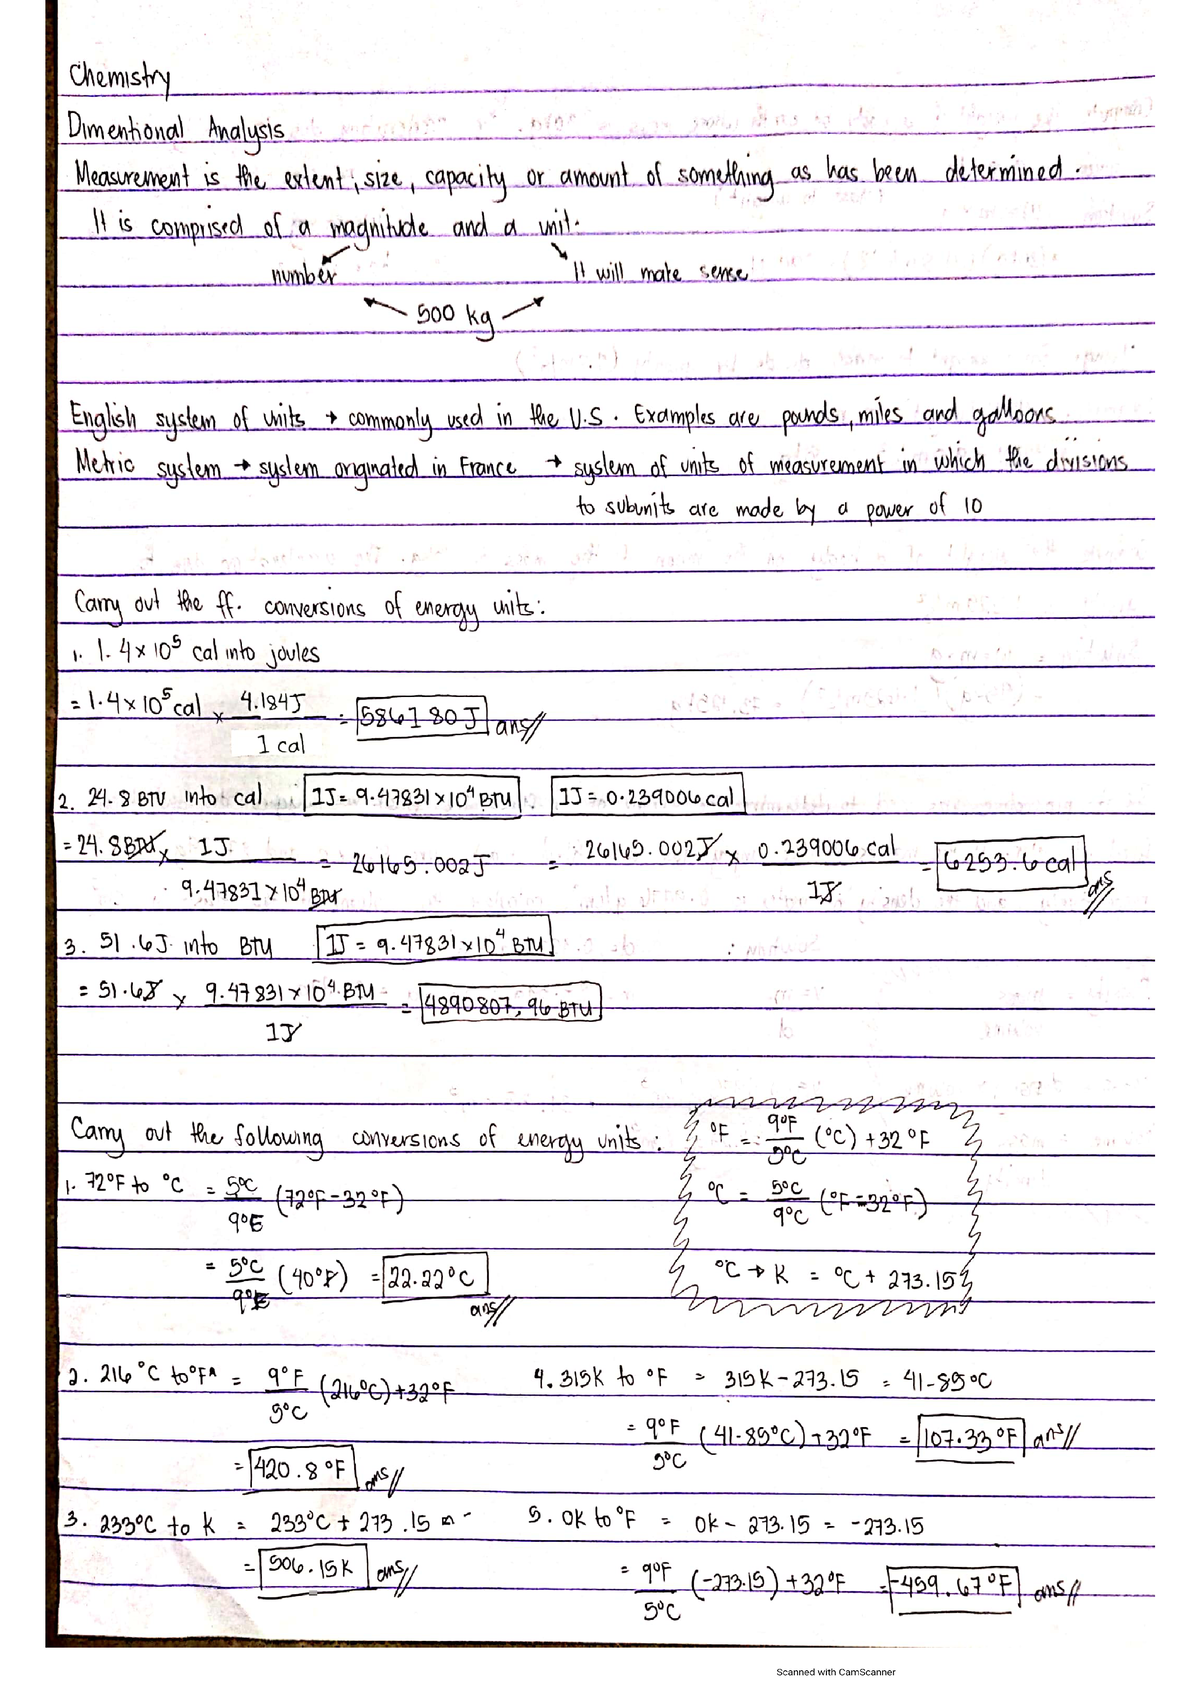 Chemistry
Dimentional Analysis
Measurement is the extent, size, capacity or amount of something as has been determined.
It is comprised of a magnitude and a unit.
number It will make sense
500 kg
English system of units → commonly used in the U.S. Examples are pounds, miles and galloons
Metric system → system originated in France → system of units of measurement in which the divisions
to subunits are made by a power of 10
Carry out the ff. conversions of energy units:
1. 1.4 x 10⁵ cal into joules
= 1.4 x 10⁵ cal x 4.184J / 1 cal = 586180 J ans//
2. 24.8 BTU into cal 1J = 9.47831 x 10⁴ BTU 1J = 0.239006 cal
= 24.8 BTU x 1J / 9.47831 x 10⁴ BTU = 26165.002J = 26165.002J x 0.239006 cal / 1J = 6253.6 cal ans//
3. 51.6J into BTU 1J = 9.47831 x 10⁴ BTU
= 51.6J x 9.47831 x 10⁴ BTU / 1J = 4890807,96 BTU
Carry out the following conversions of energy units: °F = 9°F / 5°C (°C) + 32°F
1. 72°F to °C = 5°C / 9°F (72°F - 32°F) °C = 5°C / 9°C (°F - 32°F)
= 5°C / 9°F (40°F) = 22.22°C ans// °C → K = °C + 273.15
2. 216°C to °F = 9°F / 5°C (216°C) + 32°F
= 420.8°F ans//
3. 233°C to K = 233°C + 273.15
= 506.15K ans//
4. 315K to °F = 315K - 273.15 = 41.85°C
= 9°F / 5°C (41.85°C) + 32°F = 107.33°F ans//
5. 0K to °F = 0K - 273.15 = -273.15
= 9°F / 5°C (-273.15) + 32°F = -459.67°F ans//
Scanned with CamScanner